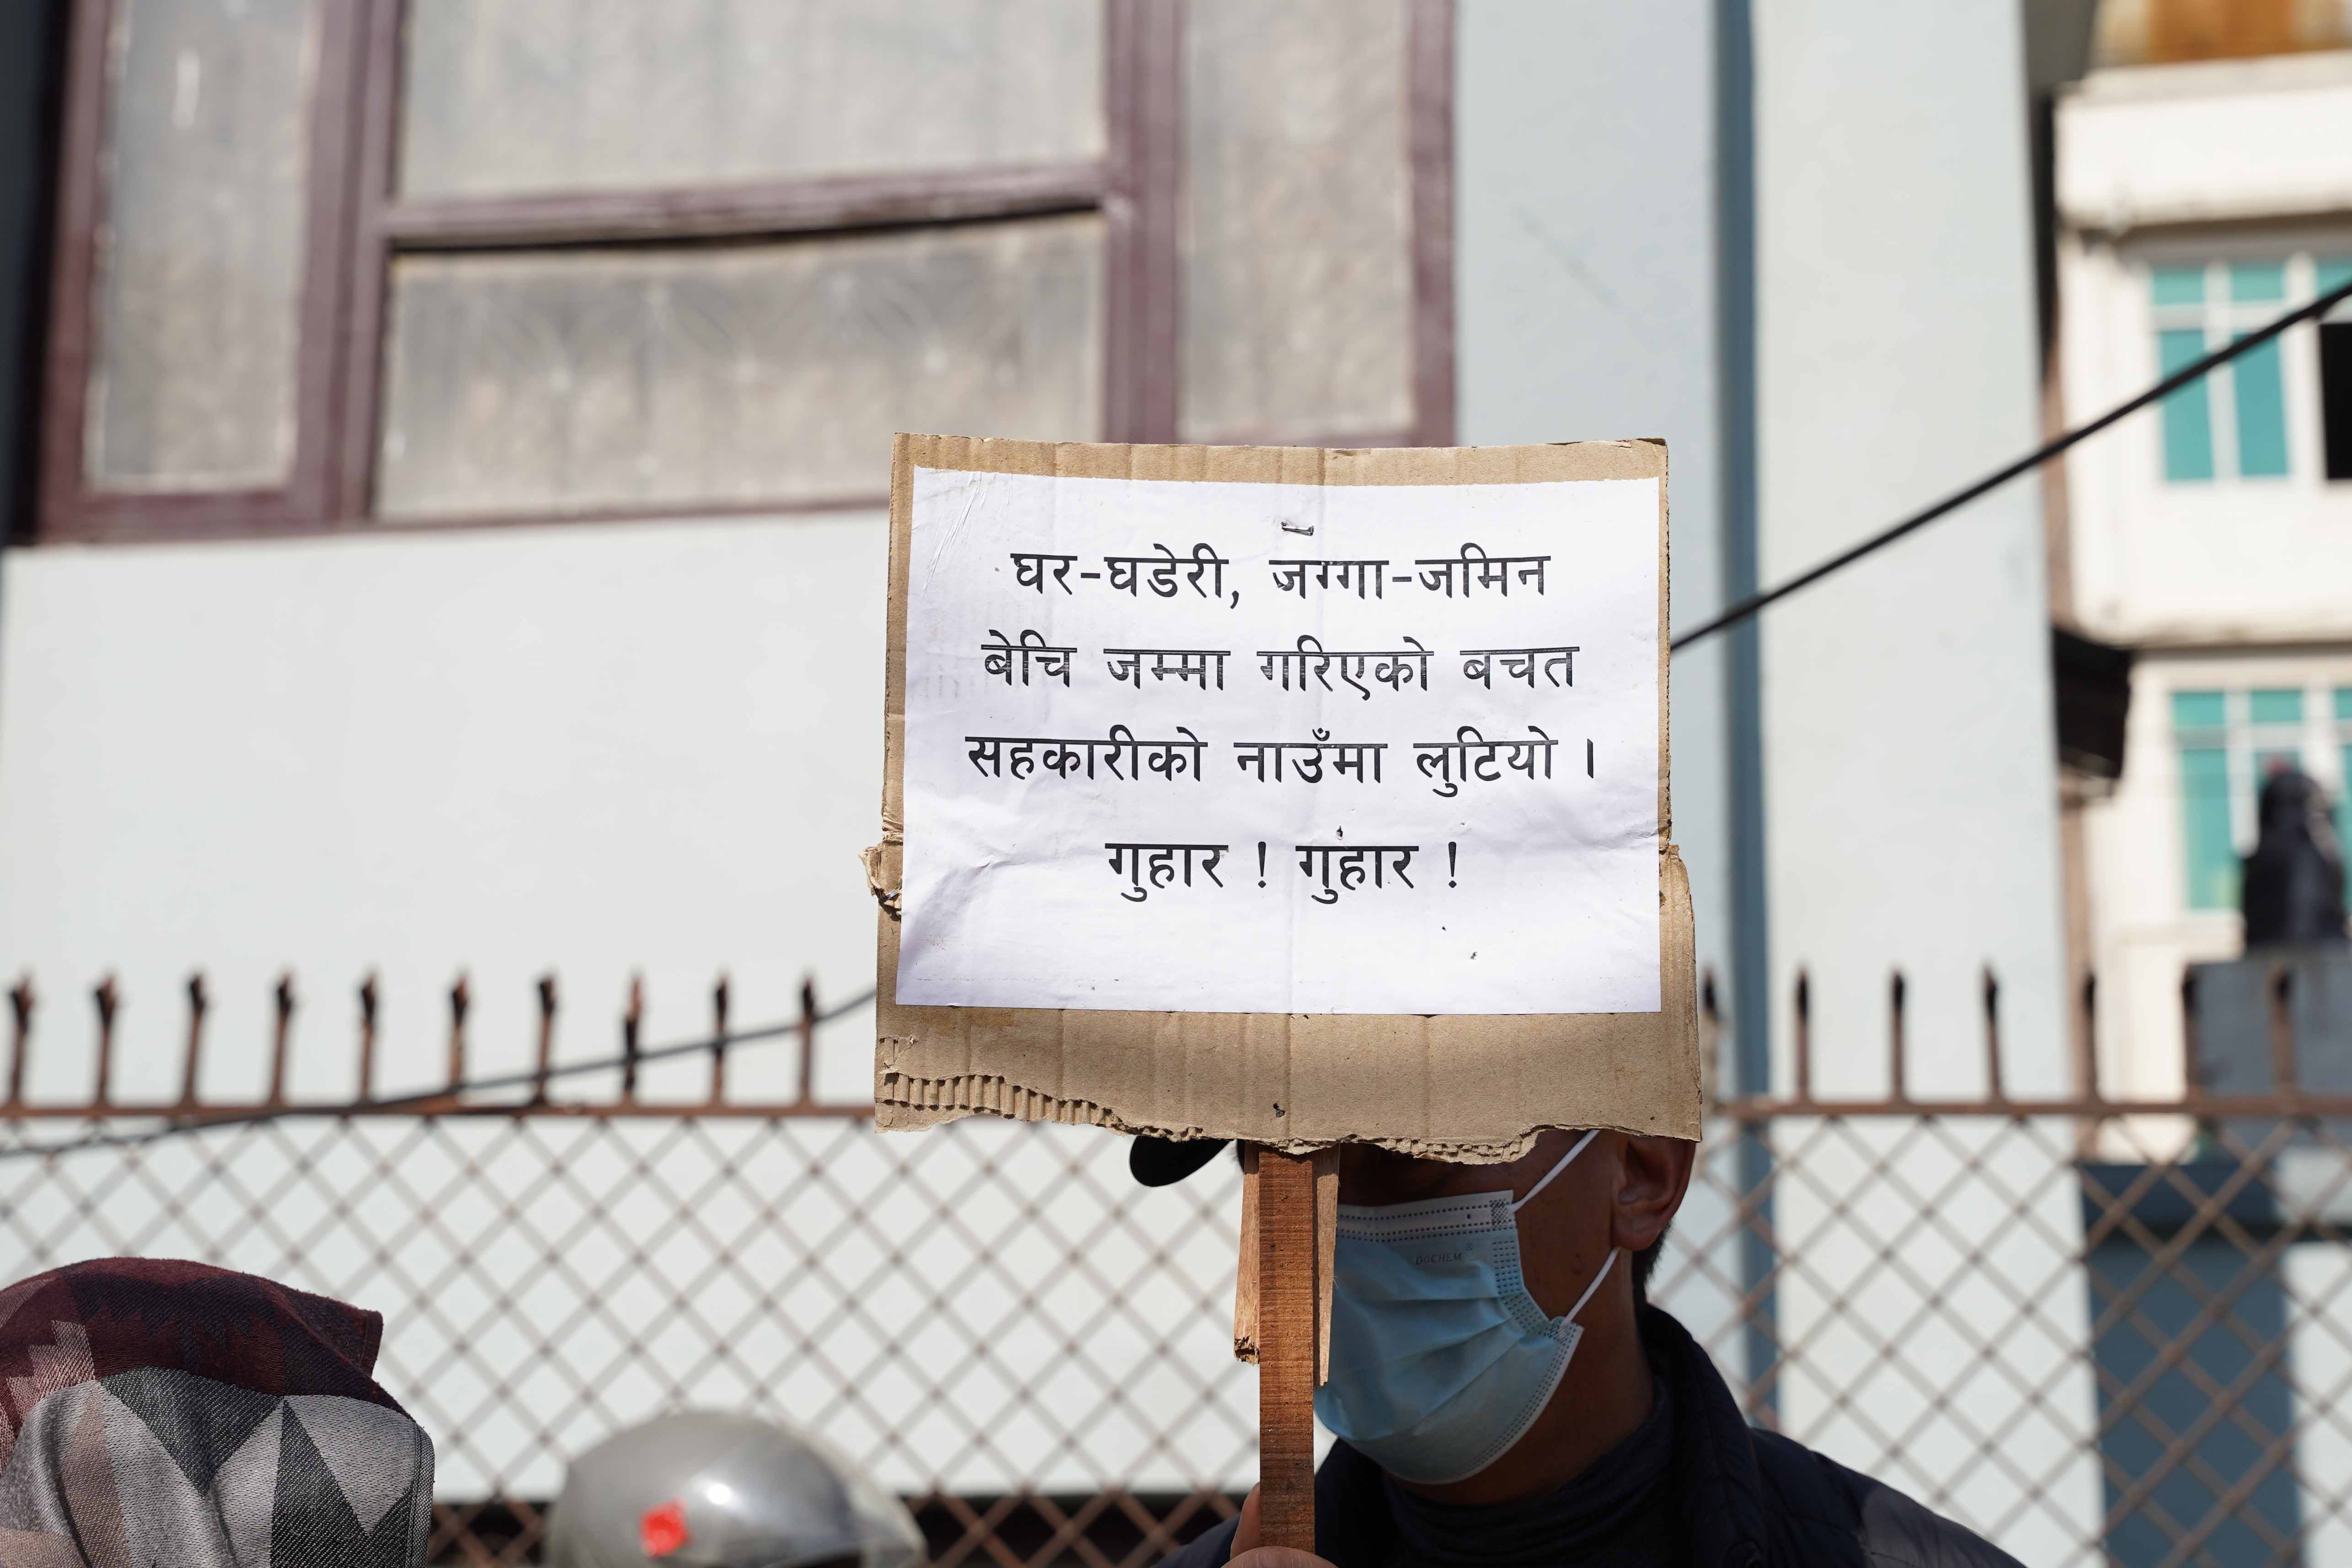 घर-घडेरी, जग्गा-जमिन
बेचि जम्मा गरिएको बचत
सहकारीको नाउँमा लुटियो ।
गुहार ! गुहार !
DOCHEM